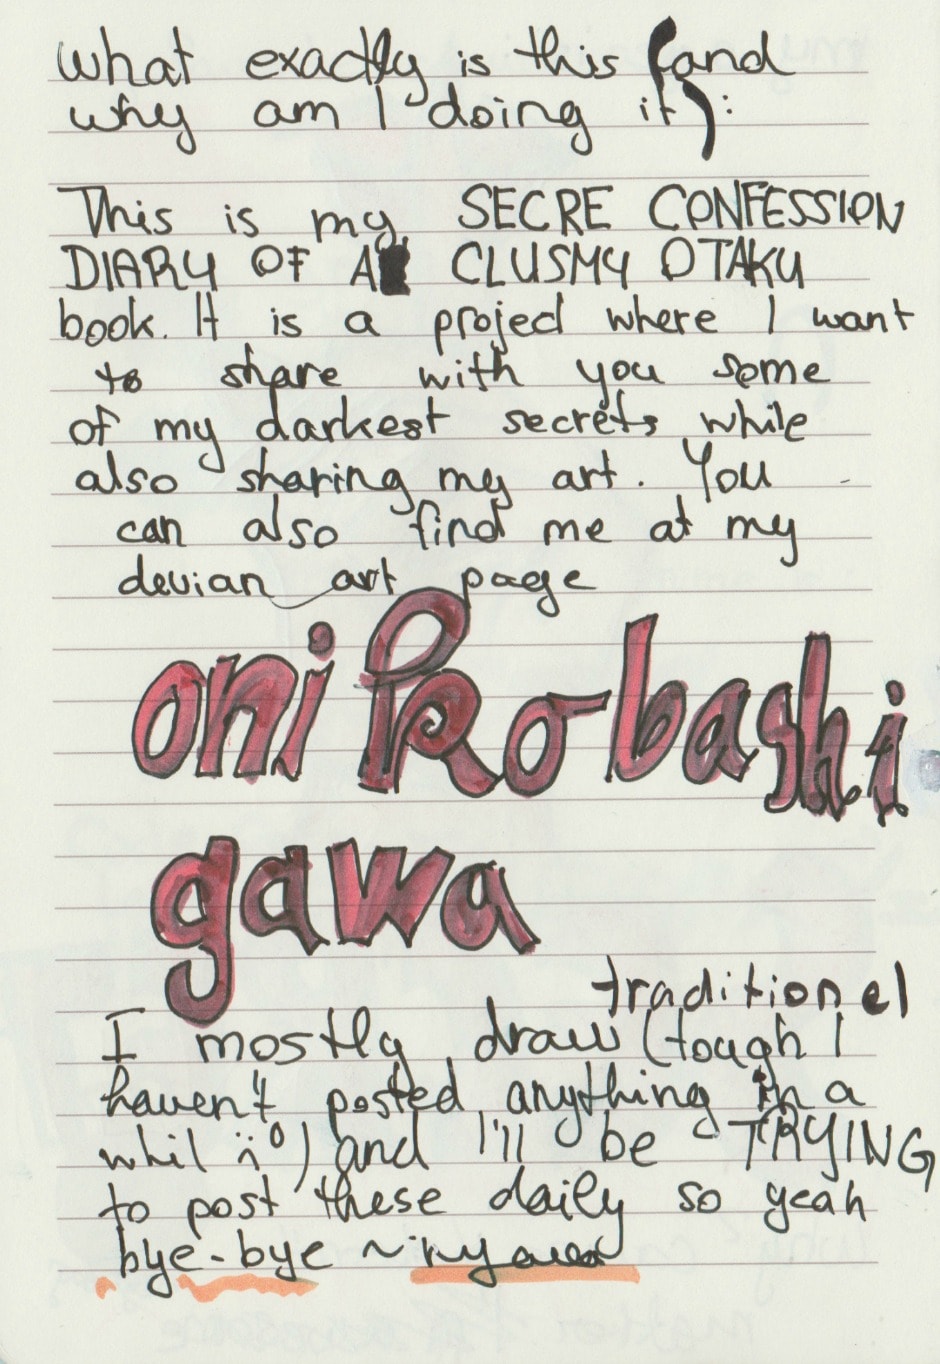 what exactly is this (and
why am I doing it):
This is my SECRE CONFESSION
DIARY OF A CLUSMY OTAKU
book. It is a projed where I want
to share with you some
of my darkest secrets while
also sharing my art. You
can also find me at my
devian art page
oni ko bashi
gawa
traditionel
I mostly draw (tough I
haven't posted anything in a
whil ) and I'll be TRYING
to post these daily so yeah
bye-bye ~